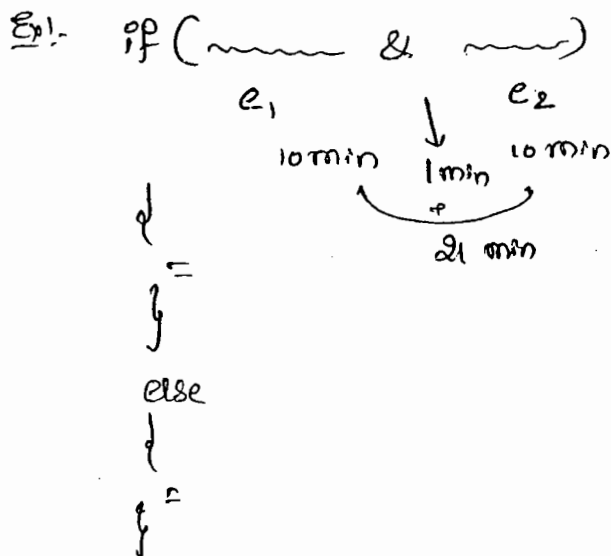 Ex1:- if ( & )
e1 e2
10 min 1 min 10 min
+
21 min
{
=
}
else
{
=
}